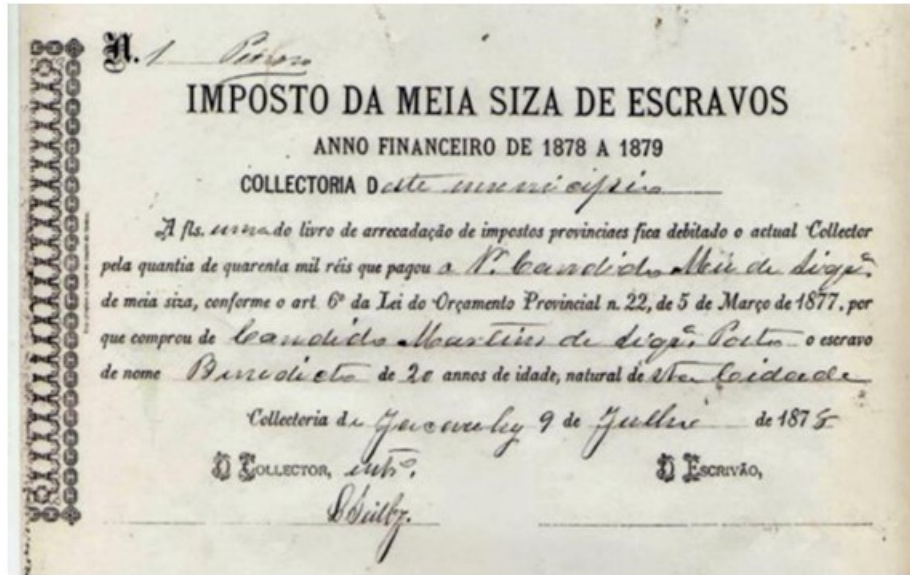 N. 1
IMPOSTO DA MEIA SIZA DE ESCRAVOS
ANNO FINANCEIRO DE 1878 A 1879
COLLECTORIA Deste municipio
A fls. uma do livro de arrecadação de impostos provinciaes fica debitado o actual Collector
pela quantia de quarenta mil réis que pagou o
de meia siza, conforme o art 6º da Lei do Orçamento Provincial n. 22, de 5 de Março de 1877, por
que comprou de Candido Martins de Siqª Porto o escravo
de nome Benedicto de 20 annos de idade, natural de sta Cidade
Collectoria de Jacarehy 9 de Julho de 1878
O COLLECTOR, intº. O ESCRIVÃO,